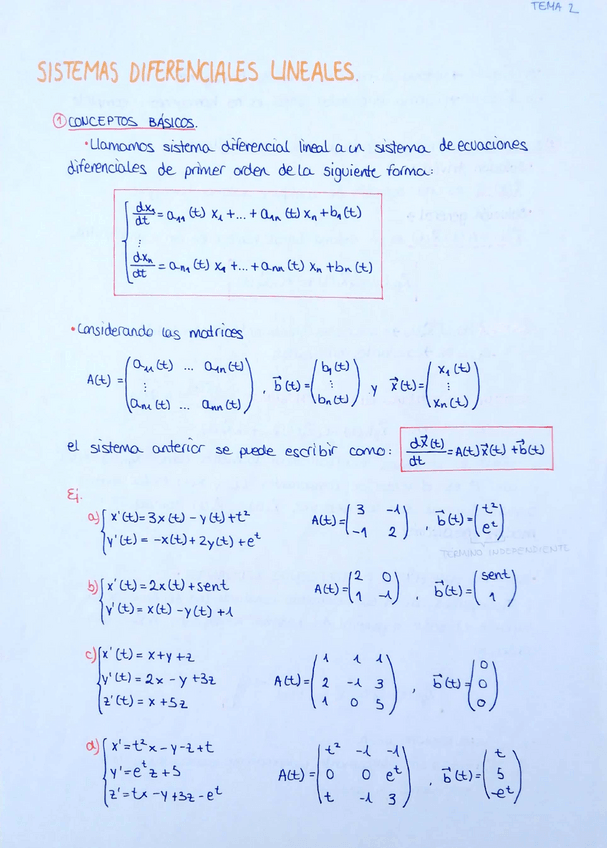 TEMA 2
SISTEMAS DIFERENCIALES LINEALES.
① CONCEPTOS BÁSICOS.
• Llamamos sistema diferencial lineal a un sistema de ecuaciones
diferenciales de primer orden de la siguiente forma:
dx₁/dt = a₁₁(t) x₁ + ... + a₁n(t) xn + b₁(t)
⋮
dxn/dt = an₁(t) x₁ + ... + ann(t) xn + bn(t)
• Considerando las matrices
A(t) = (a₁₁(t) ... a₁n(t) ⋮ an₁(t) ... ann(t)), b⃗(t) = (b₁(t) ⋮ bn(t)) y x⃗(t) = (x₁(t) ⋮ xn(t))
el sistema anterior se puede escribir como: dx⃗(t)/dt = A(t)x⃗(t) + b⃗(t)
Ej.
a) { x'(t) = 3x(t) - y(t) + t² A(t) = (3 -1
y'(t) = -x(t) + 2y(t) + eᵗ -1 2), b⃗(t) = (t² eᵗ)
TÉRMINO INDEPENDIENTE
b) { x'(t) = 2x(t) + sent A(t) = (2 0
y'(t) = x(t) - y(t) + 1 1 -1), b⃗(t) = (sent 1)
c) { x'(t) = x + y + z 1 1 1 0
y'(t) = 2x - y + 3z A(t) = 2 -1 3 , b⃗(t) = 0
z'(t) = x + 5z 1 0 5 0
d) { x' = t²x - y - z + t t² -1 -1 t
y' = eᵗz + 5 A(t) = 0 0 eᵗ , b⃗(t) = 5
z' = tx - y + 3z - eᵗ t -1 3 -eᵗ